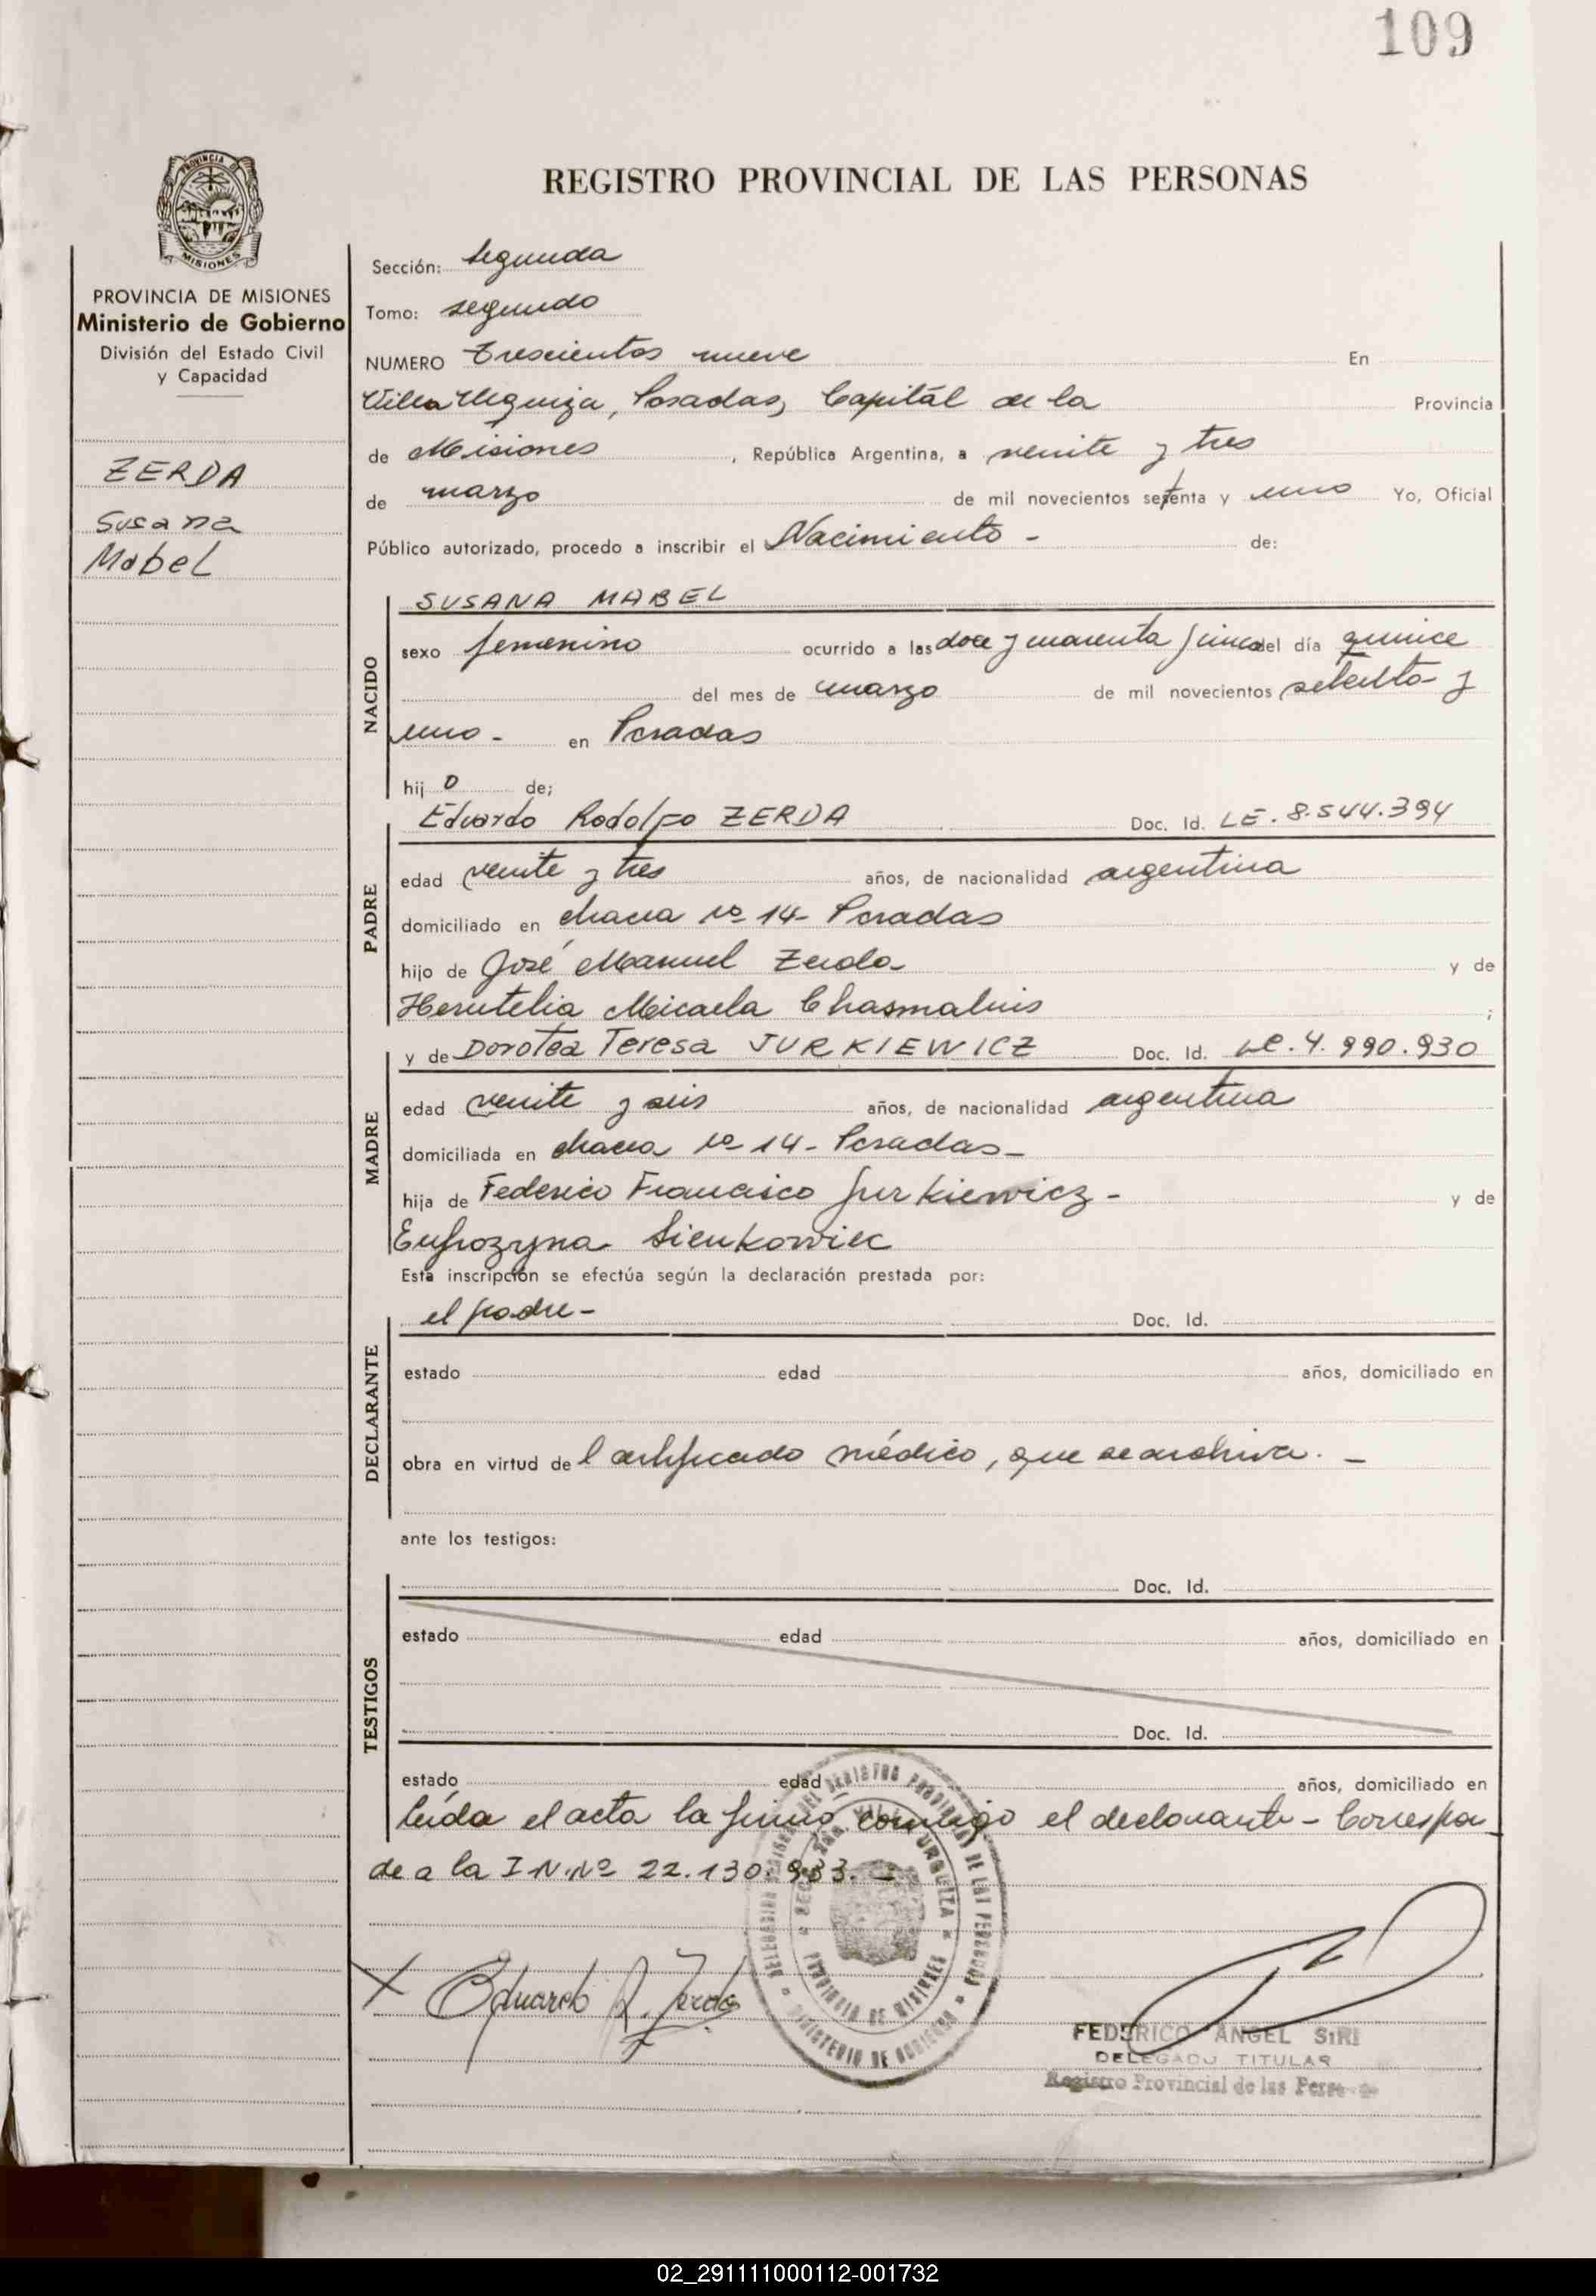 109
PROVINCIA
MISIONES
REGISTRO PROVINCIAL DE LAS PERSONAS
PROVINCIA DE MISIONES
Ministerio de Gobierno
División del Estado Civil
y Capacidad
ZERDA
Susana
Mabel
Sección: Segunda
Tomo: segundo
NUMERO Trescientos nueve En
Villa Urquiza, Posadas, Capitál de la Provincia
de Misiones, República Argentina, a veinte y tres
de marzo de mil novecientos setenta y uno Yo, Oficial
Público autorizado, procedo a inscribir el Nacimiento - de:
NACIDO
SUSANA MABEL
sexo femenino ocurrido a las doce y cuarenta y cinco del día quince
del mes de marzo de mil novecientos setenta y
uno - en Posadas
hij o de;
PADRE
Eduardo Rodolfo ZERDA Doc. Id. LE. 8.544.394
edad veinte y tres años, de nacionalidad argentina
domiciliado en chacra nº 14- Posadas
hijo de José Manuel Zerda y de
Micaela ;
MADRE
y de Dorotea Teresa JURKIEWICZ Doc. Id. LC. 4.990.930
edad veinte y seis años, de nacionalidad argentina
domiciliada en chacra nº 14- Posadas-
hija de Federico Francisco Jurkiewicz - y de
Eufrozyna Sienkowiec
Esta inscripción se efectúa según la declaración prestada por:
DECLARANTE
el padre - Doc. Id.
estado edad años, domiciliado en
obra en virtud del certificado médico, que se archiva. -
ante los testigos:
TESTIGOS
Doc. Id.
estado edad años, domiciliado en
Doc. Id.
estado edad años, domiciliado en
leída el acta la firma conmigo el declarante - Correspon
de a la I.N. Nº 22.130.933.-
X Eduardo R. Zerda
URQUIZA
PROVINCIA DE MISIONES
MINISTERIO DE GOBIERNO
FEDERICO ANGEL SIRI
DELEGADO TITULAR
Registro Provincial de las Personas
02_291111000112-001732